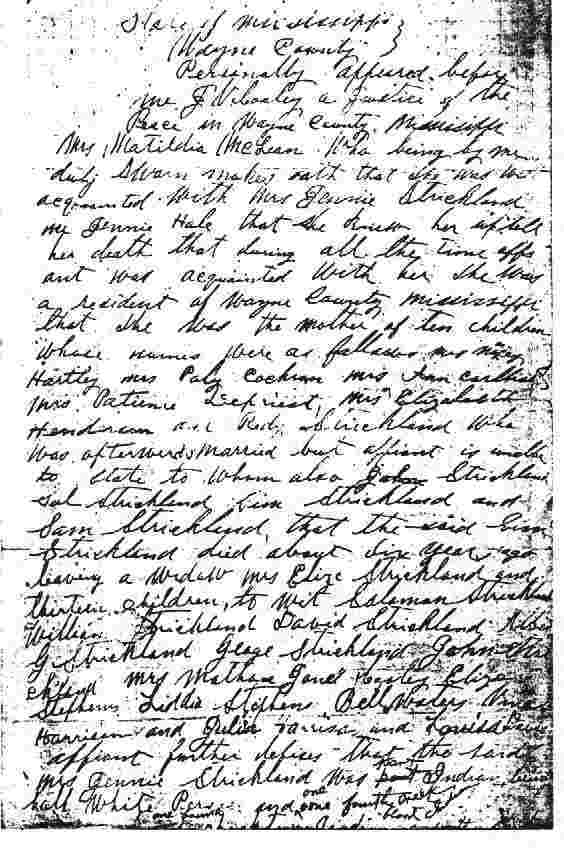 State of Mississippi }
Wayne County }
Personally appeared before
me J. V. Cooley a Justice of the
Peace in Wayne County, Mississippi
Mrs Matildia McLean Who being by me
duly Sworn makes oath that she was well
acquainted With Mrs Jennie Strickland
nee Jennie Hale that She knew her uptill
her death that during all the time affi
ant was acquainted With her She was
a resident of Wayne County Mississippi
that she was the mother of ten children
Whose names were as follows Mrs
Hartley Mrs Cochran Mrs Ann
Mrs. Patience Mrs Elizabeth
Henderson and Strickland Who
was afterwards Married but affiant is unable
to State to Whom also John Strickland
Sol Strickland Sim Strickland and
Sam Strickland, that the said Sim
Strickland died about Six years ago
leaving a Widow Mrs Elize Strickland and
thirteen children, to Wit Salaman Strickland
William Strickland David Strickland
G. Strickland Geoge Strickland John
Mrs Jane Elize
Stephens Liddie Stephens Bell Waters
Harrison and Julia Harrison and Louisa
affiant further deposes that the said
Mrs Jennie Strickland was part Indian
half White and one fourth Creek
one fourth blood